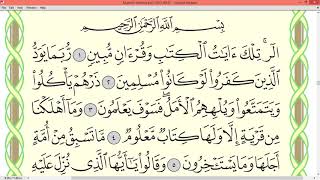 بِسْمِ اللَّهِ الرَّحْمَٰنِ الرَّحِيمِ
الٓر ۚ تِلْكَ ءَايَٰتُ الْكِتَٰبِ وَقُرْءَانٍ مُّبِينٍ ١ رُّبَمَا يَوَدُّ
الَّذِينَ كَفَرُوا۟ لَوْ كَانُوا۟ مُسْلِمِينَ ٢ ذَرْهُمْ يَأْكُلُوا۟
وَيَتَمَتَّعُوا۟ وَيُلْهِهِمُ الْأَمَلُ ۖ فَسَوْفَ يَعْلَمُونَ ٣ وَمَآ أَهْلَكْنَا
مِن قَرْيَةٍ إِلَّا وَلَهَا كِتَابٌ مَّعْلُومٌ ٤ مَّا تَسْبِقُ مِنْ أُمَّةٍ
أَجَلَهَا وَمَا يَسْتَـْٔخِرُونَ ٥ وَقَالُوا۟ يَٰٓأَيُّهَا الَّذِى نُزِّلَ عَلَيْهِ